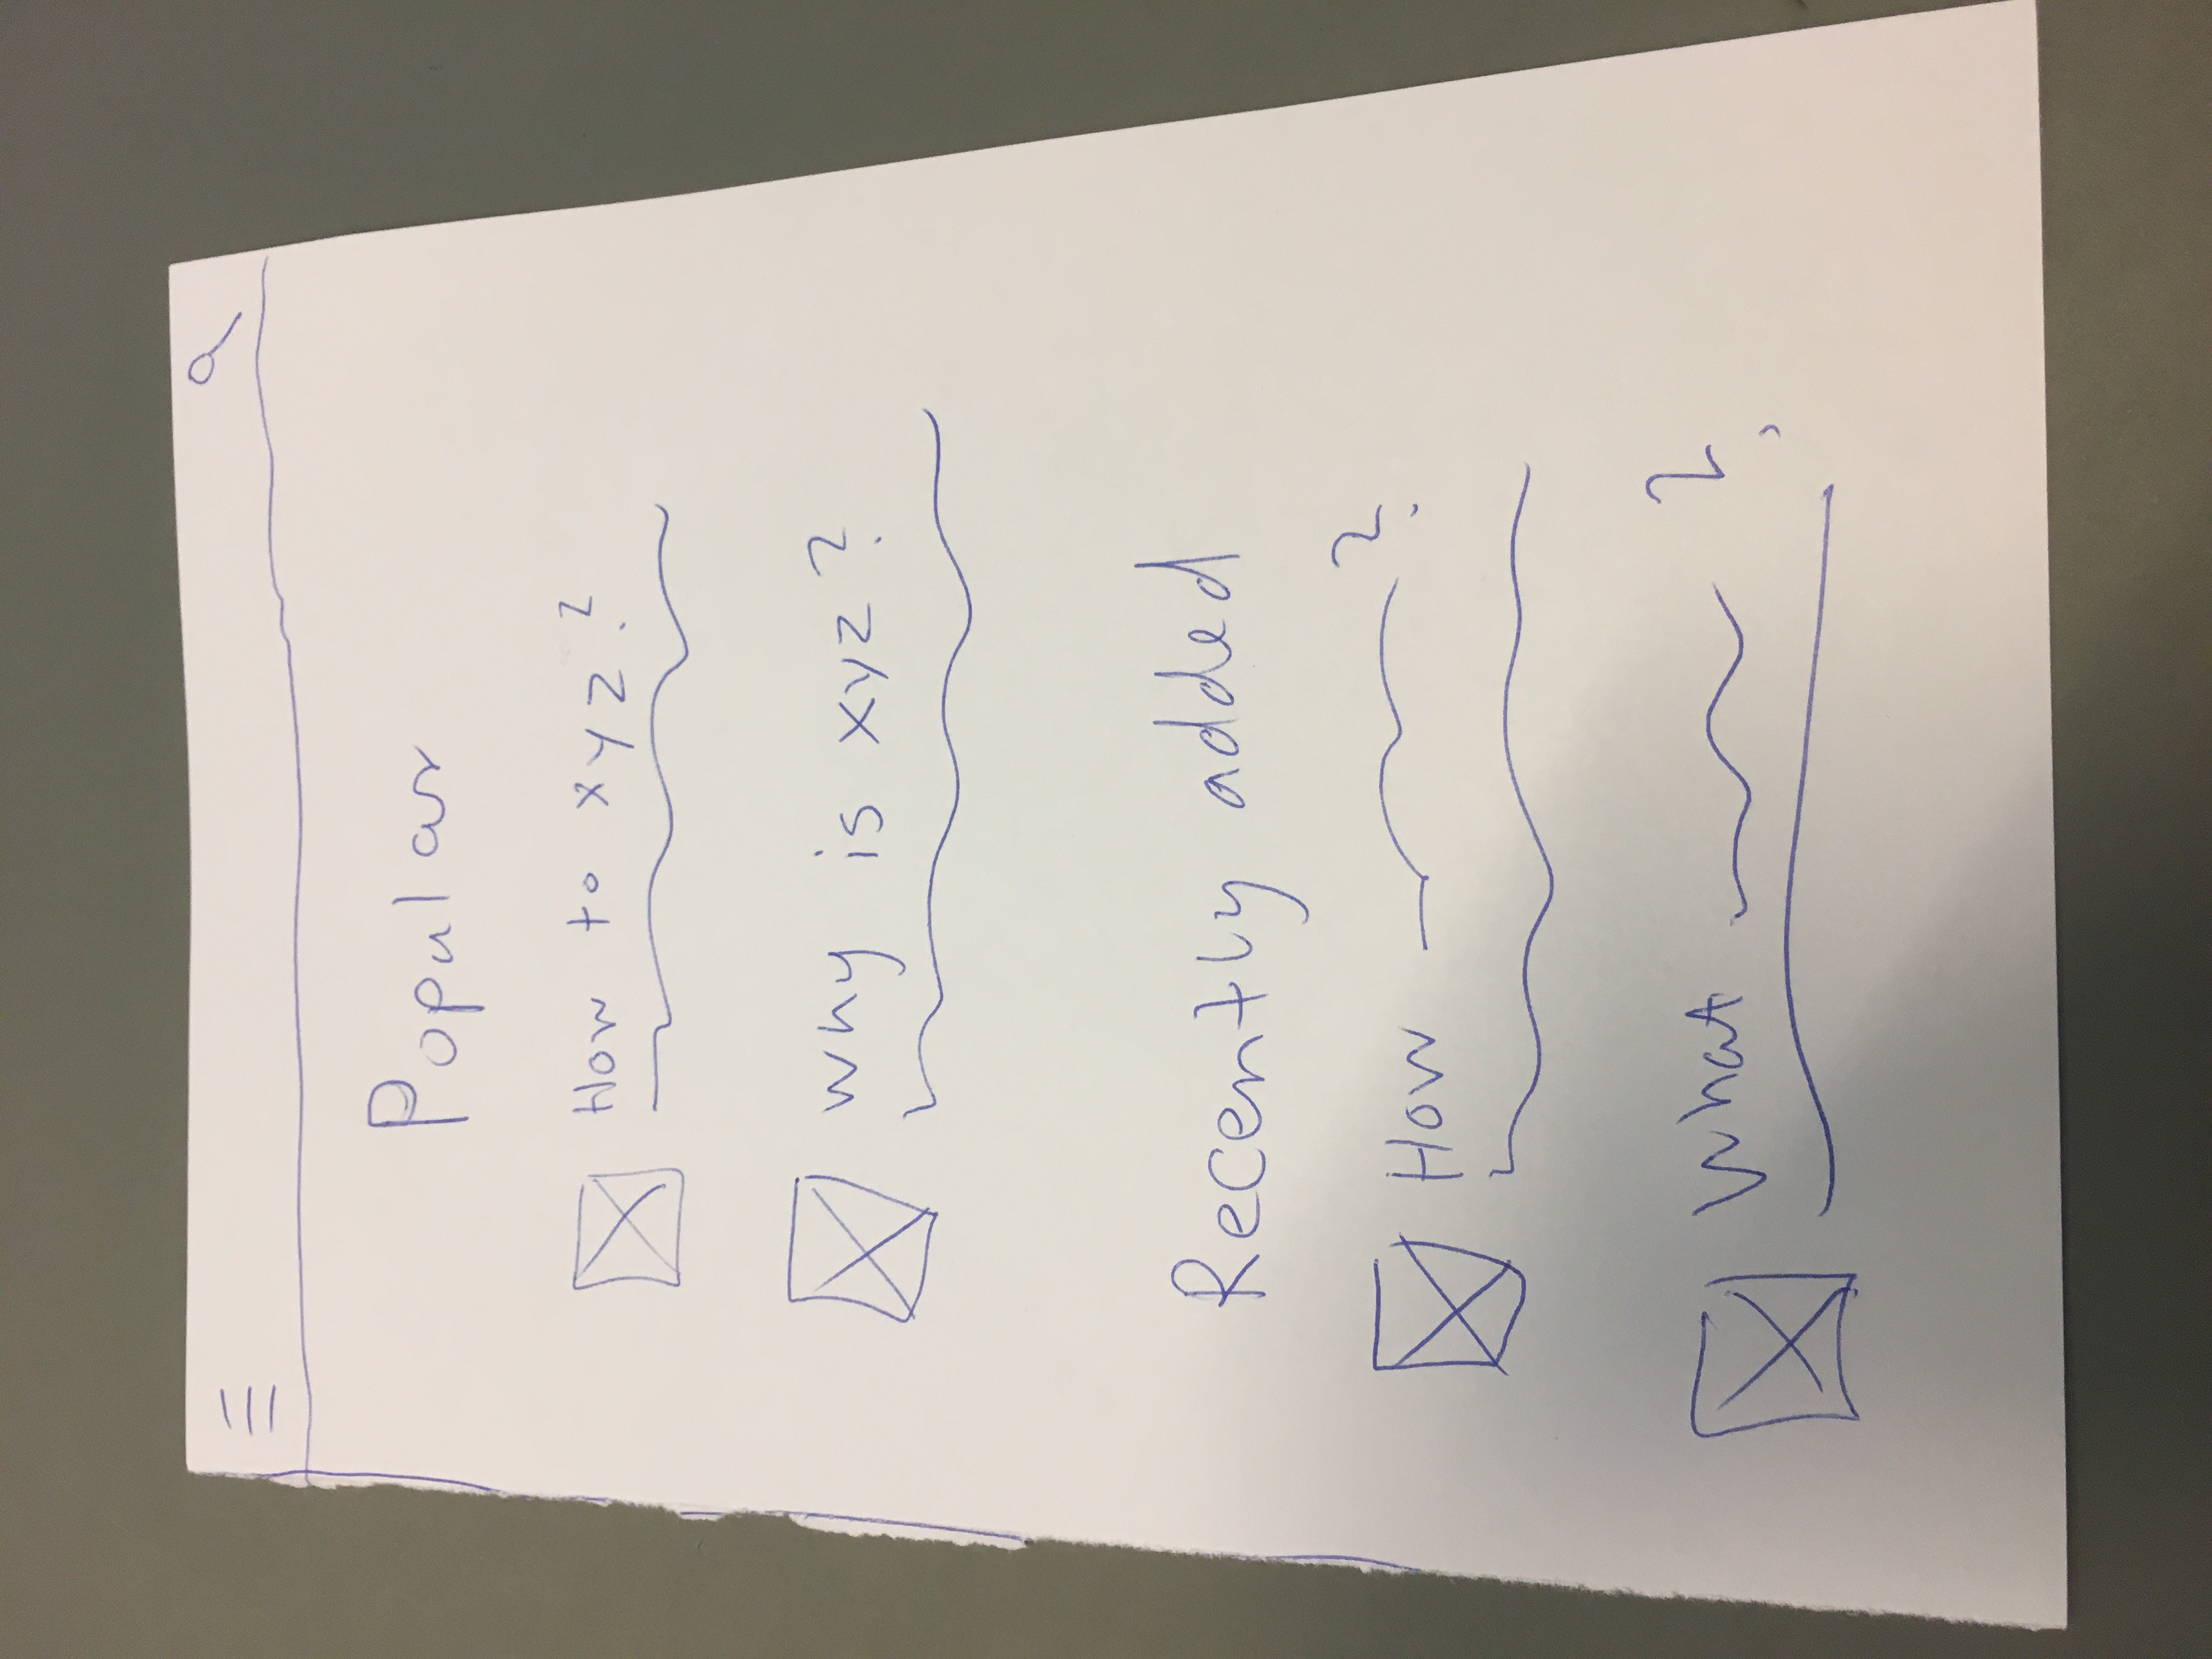 Popular
How to xyz?
Why is xyz?
Recently added
How ?
What ?